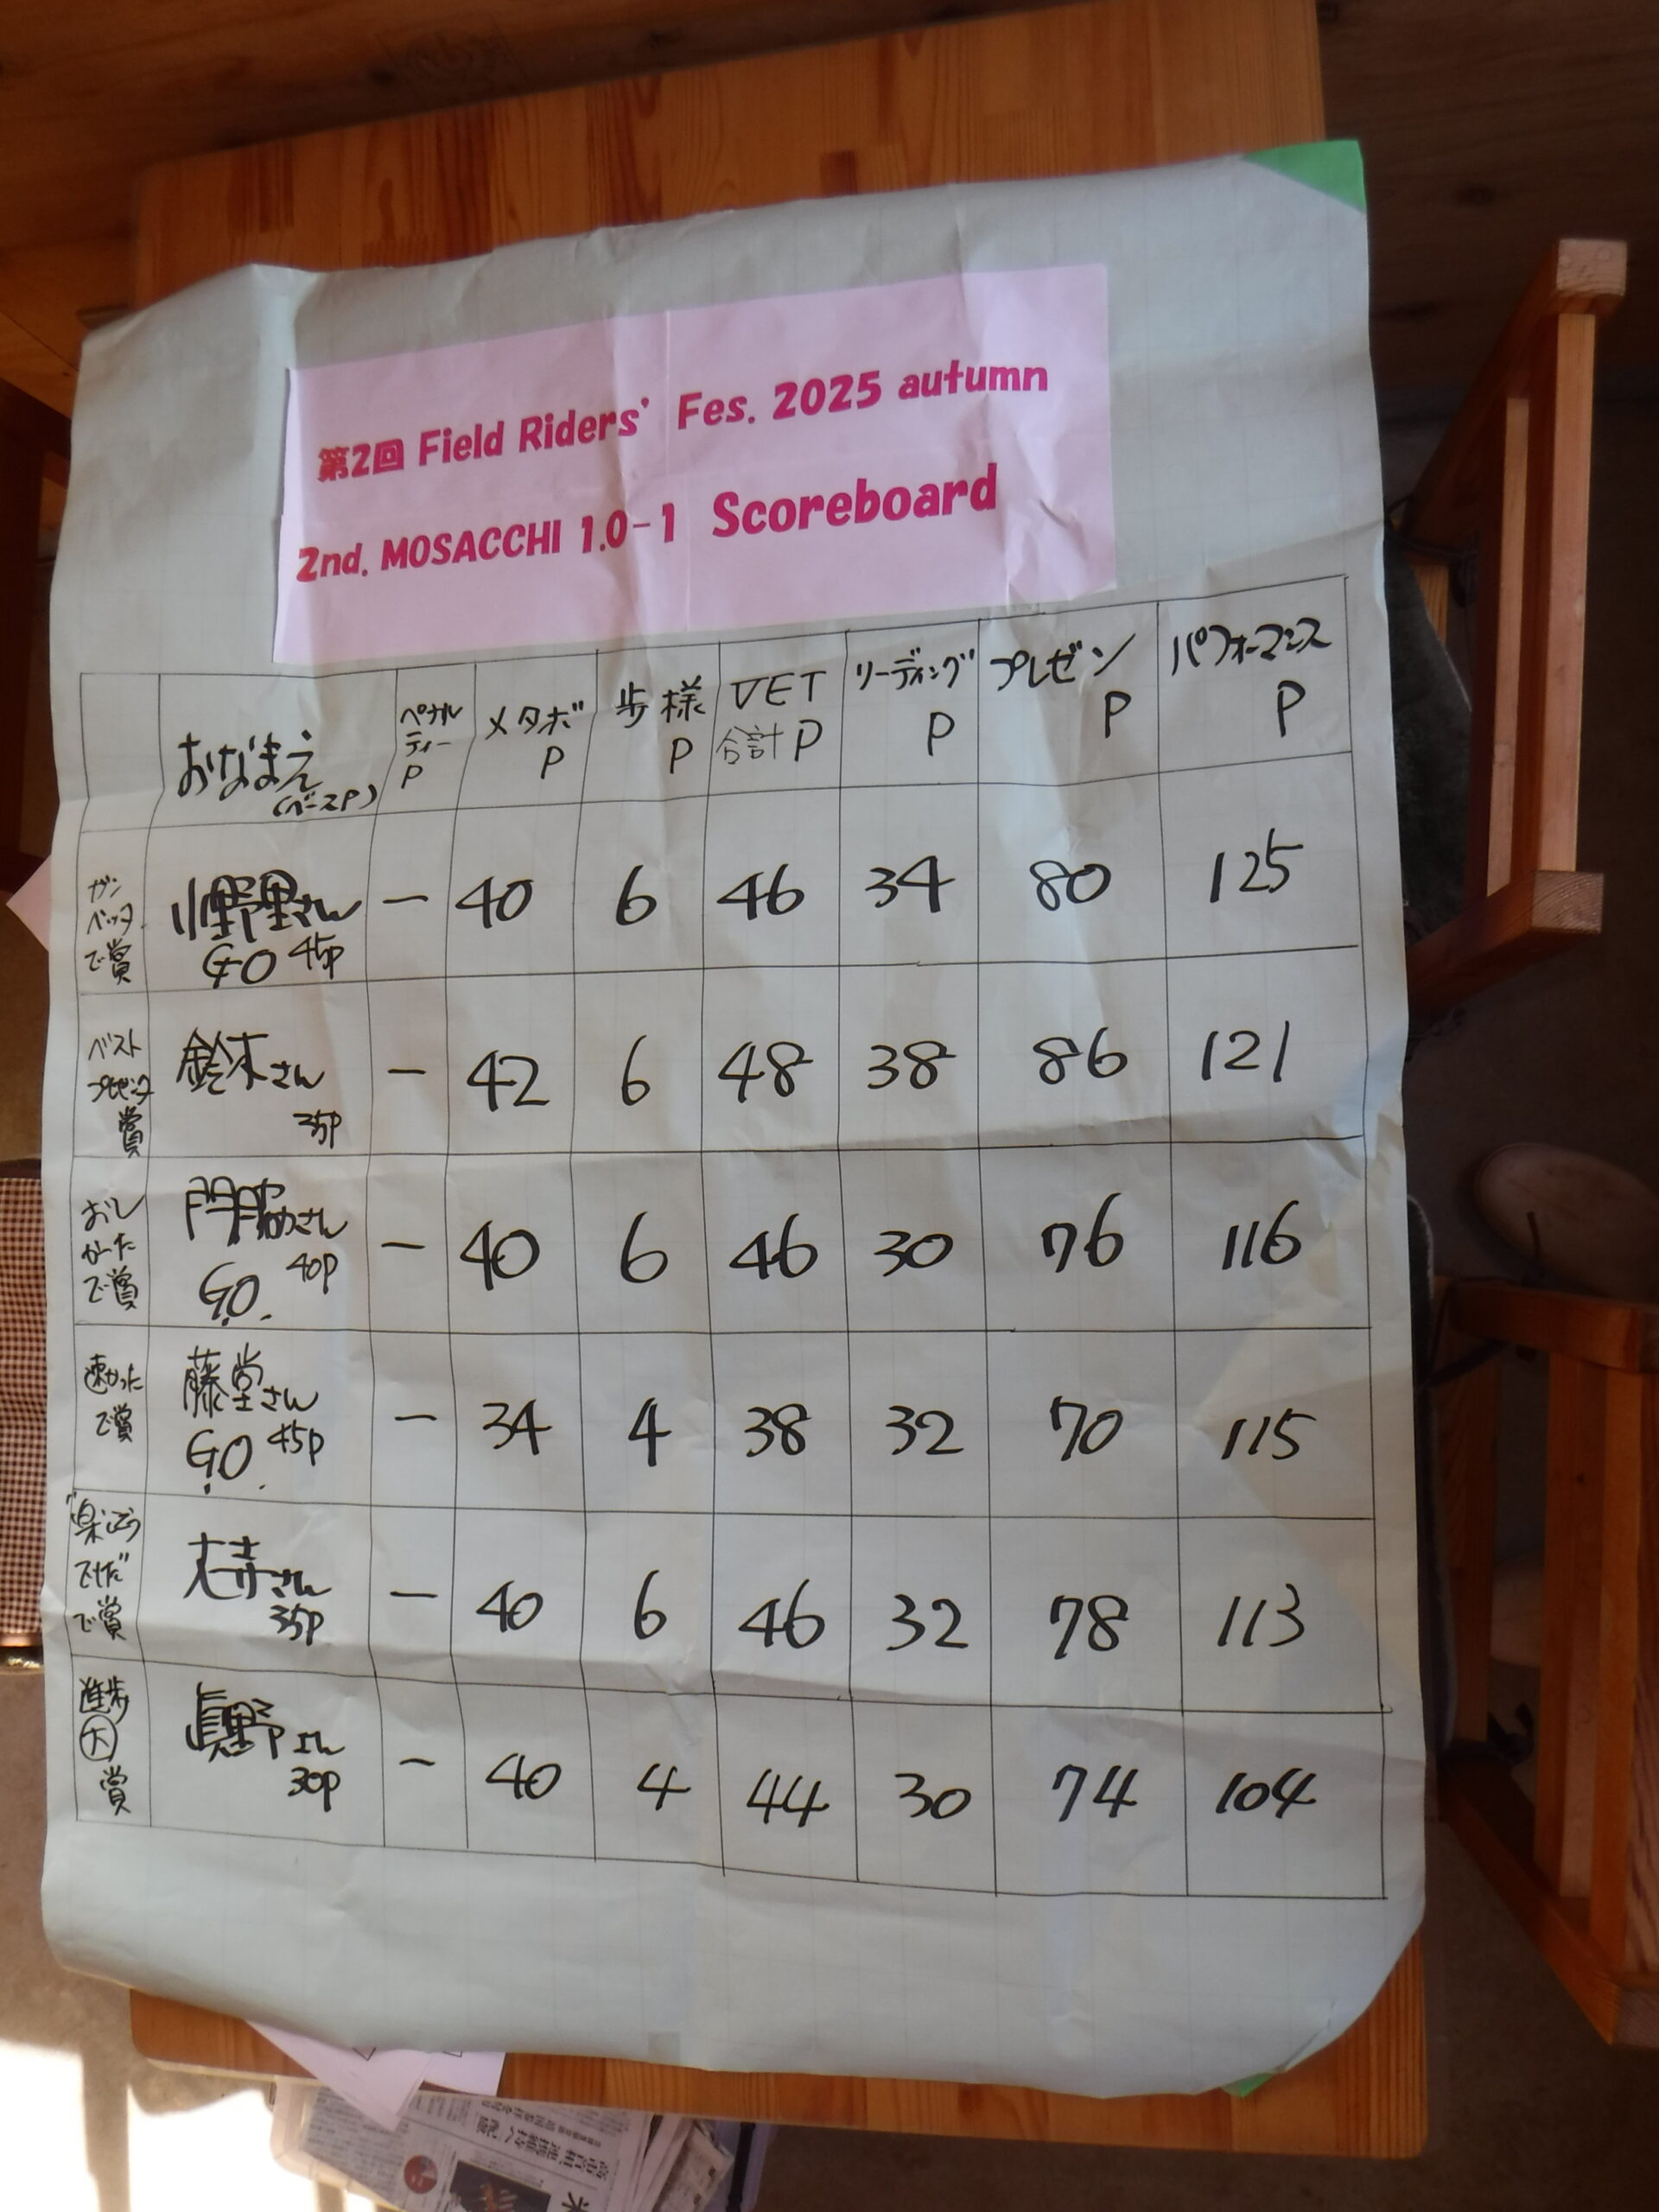 第2回 Field Riders' Fes. 2025 autumn
2nd. MOSACCHI 1.0-1 Scoreboard
おなまえ
(ベースP)
ペナル
ティー
P
メタボ
P
歩様
P
VET
合計P
リーディング
P
プレゼン
P
パフォーマンス
P
ガン
バッタ
で賞
小野里さん
GO 45p
－ 40 6 46 34 80 125
ベスト
プレゼンター
賞
鈴木さん
35p
－ 42 6 48 38 86 121
おし
かった
で賞
門脇さん
40p
G.O.
－ 40 6 46 30 76 116
速かった
で賞
藤堂さん
G.O. 45p
－ 34 4 38 32 70 115
でした"
で賞
さん
35p
－ 40 6 46 32 78 113
進歩
大
賞
眞野さん
30p
－ 40 4 44 30 74 104